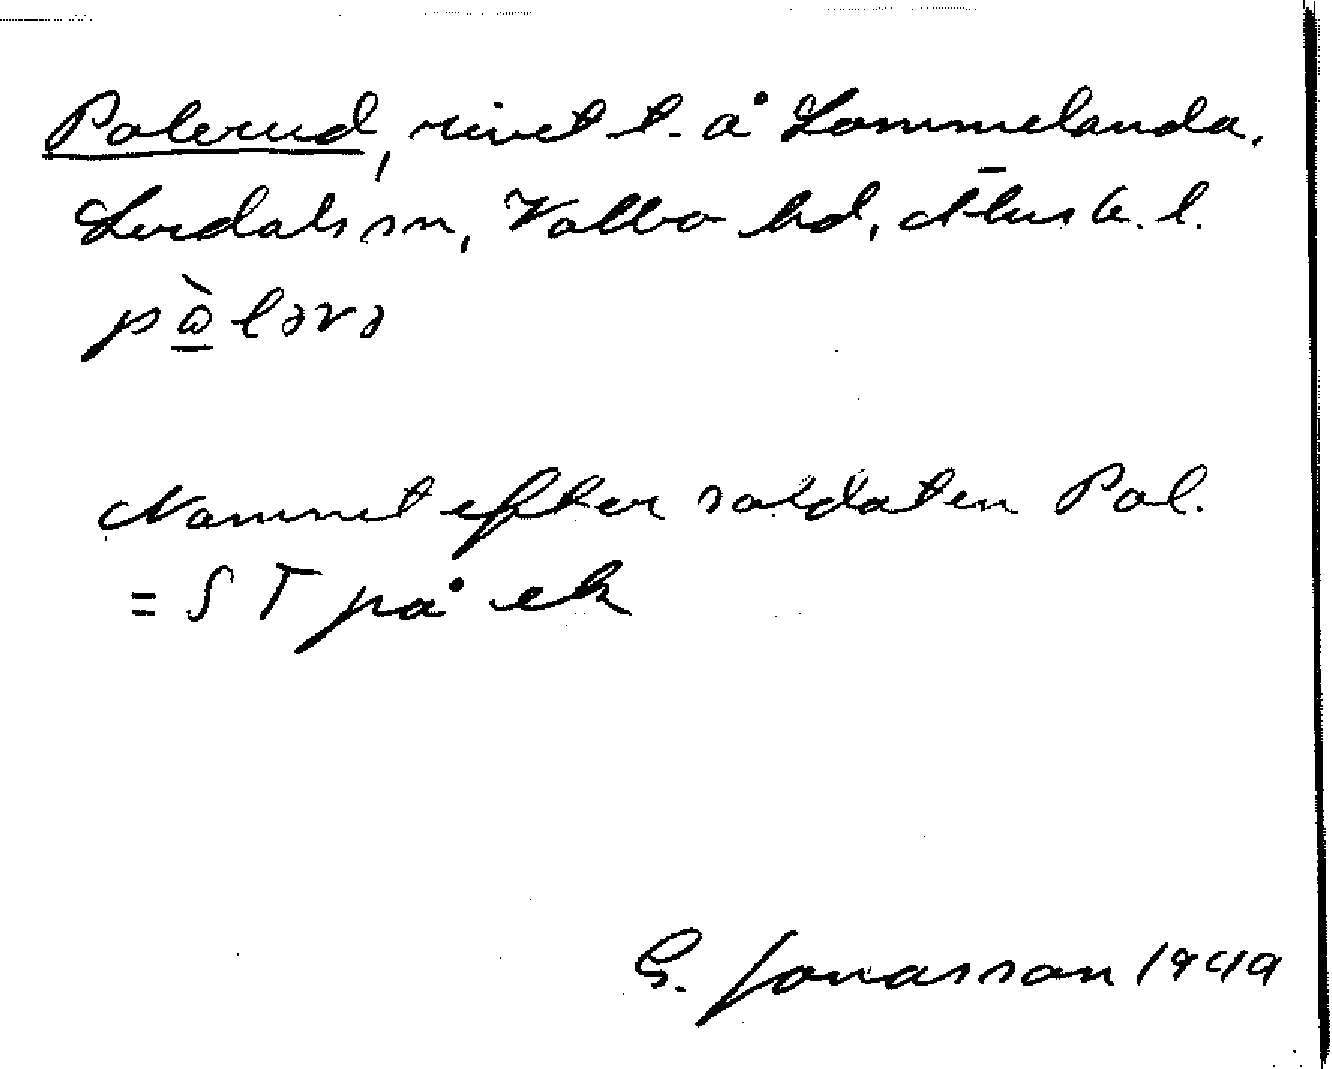 Polerud, rivet t. å Lommelanda,
Lerdals sn, Valbo hd, Älvsb. l.
pàlərə
Namnet efter soldaten Pol.
= ST på ek
G. Jonasson 1949